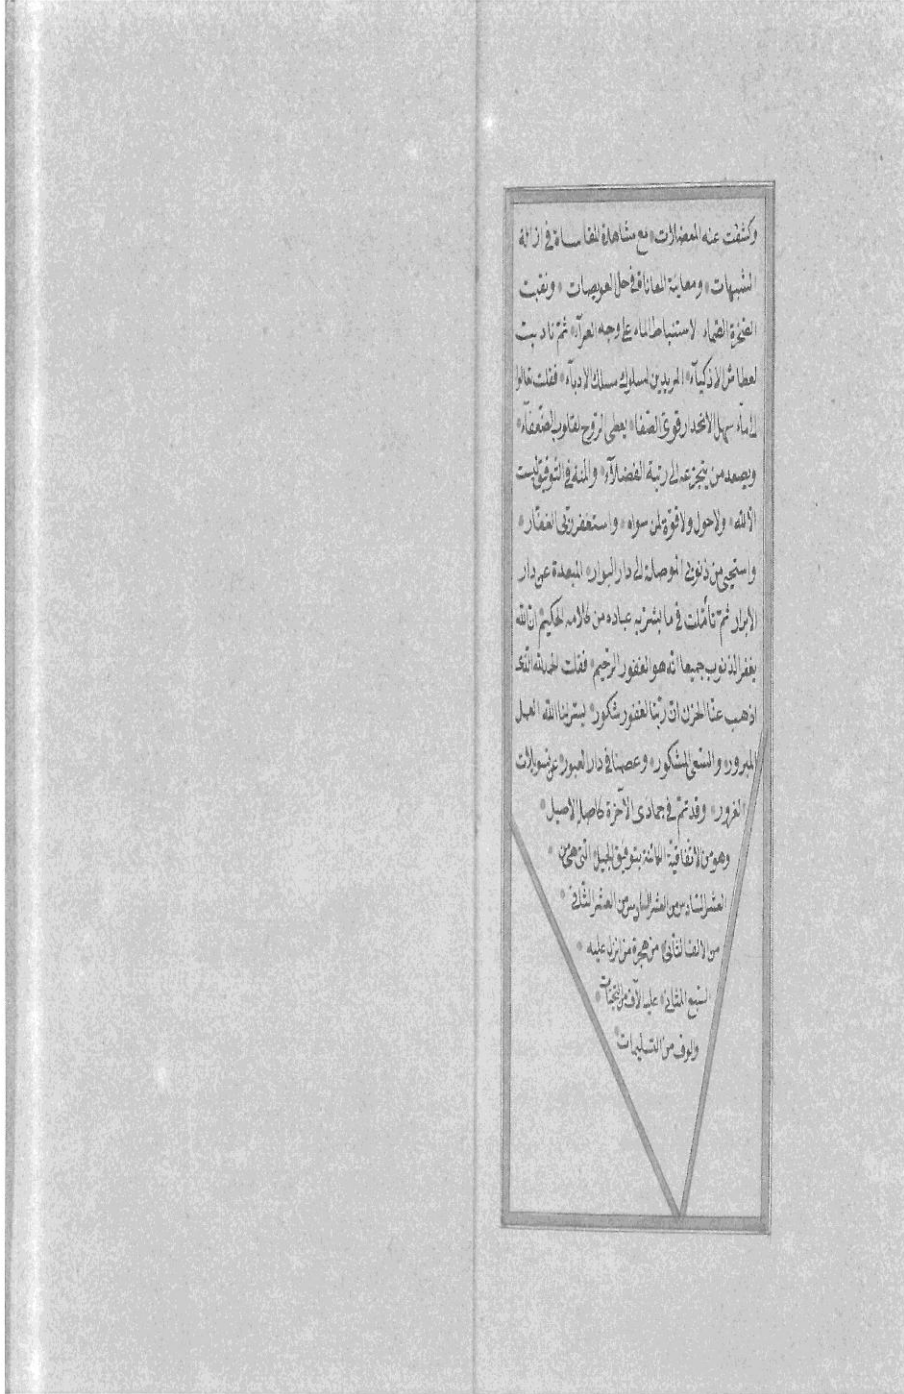 وكشفت عنه المعضلات مع مشاهدة المقاساة في ازالة
الشبهات ومعاينة المعاناة في حل العويصات ونقبت
الصخرة الصماء لاستنباط الماء على وجه العرآء ثم ناديت
لعطاش الاذكيآء المريدين لسلوك مسلك الادبآء فقلت تعالوا
الى مآء سهل الانحدار قوى الصفا يعطى الروح لقلوب الضعفآء
ويصعد من يتجرعه الى رتبة الفضلآء والمنة في التوفيق ليست
الا لله ولا حول ولا قوة لمن سواه واستغفر ربى الغفار
واستحيى من ذنوبى الموصلة الى دار البوار المبعدة عن دار
الابرار ثم تأملت في ما بشر به عباده من كلامه الحكيم ان الله
يغفر الذنوب جميعا انه هو الغفور الرحيم فقلت الحمد لله الذى
اذهب عنا الحزن ان ربنا لغفور شكور يسر لنا الله العمل
المبرور والسعى المشكور وعصمنا في دار العبور عن تسويلات
الغرور وقد تم في جمادى الآخرة كاصل الاصيل
وهو من الاتفاقية الكائنة بتوفيق الجميل التى هى من
العشر السادس من العشر السادس من العشر الثانى
من الالف الثانى من هجرة من انزل عليه
السبع المثانى عليه الآف من التحيات
والوف من التسليمات